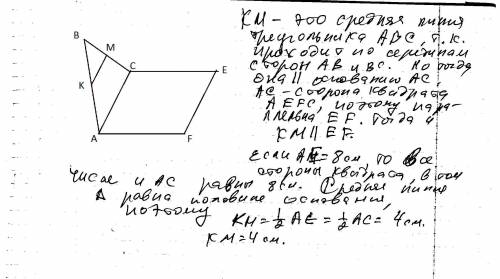 B
M
C
E
K
A
F
КМ – это средняя линия
треугольника АВС, т.к.
проходит по серединам
сторон АВ и ВС. Но тогда
она || основанию АС,
АС – сторона квадрата
AEFC, поэтому пара-
ллельна EF. Тогда и
КМ || EF.
Если АЕ = 8 см, то все
стороны квадрата, в том
числе и АС равны 8 см. Средняя линия
равна половине основания,
поэтому КМ = 1/2 АЕ = 1/2 АС = 4 см.
КМ = 4 см.